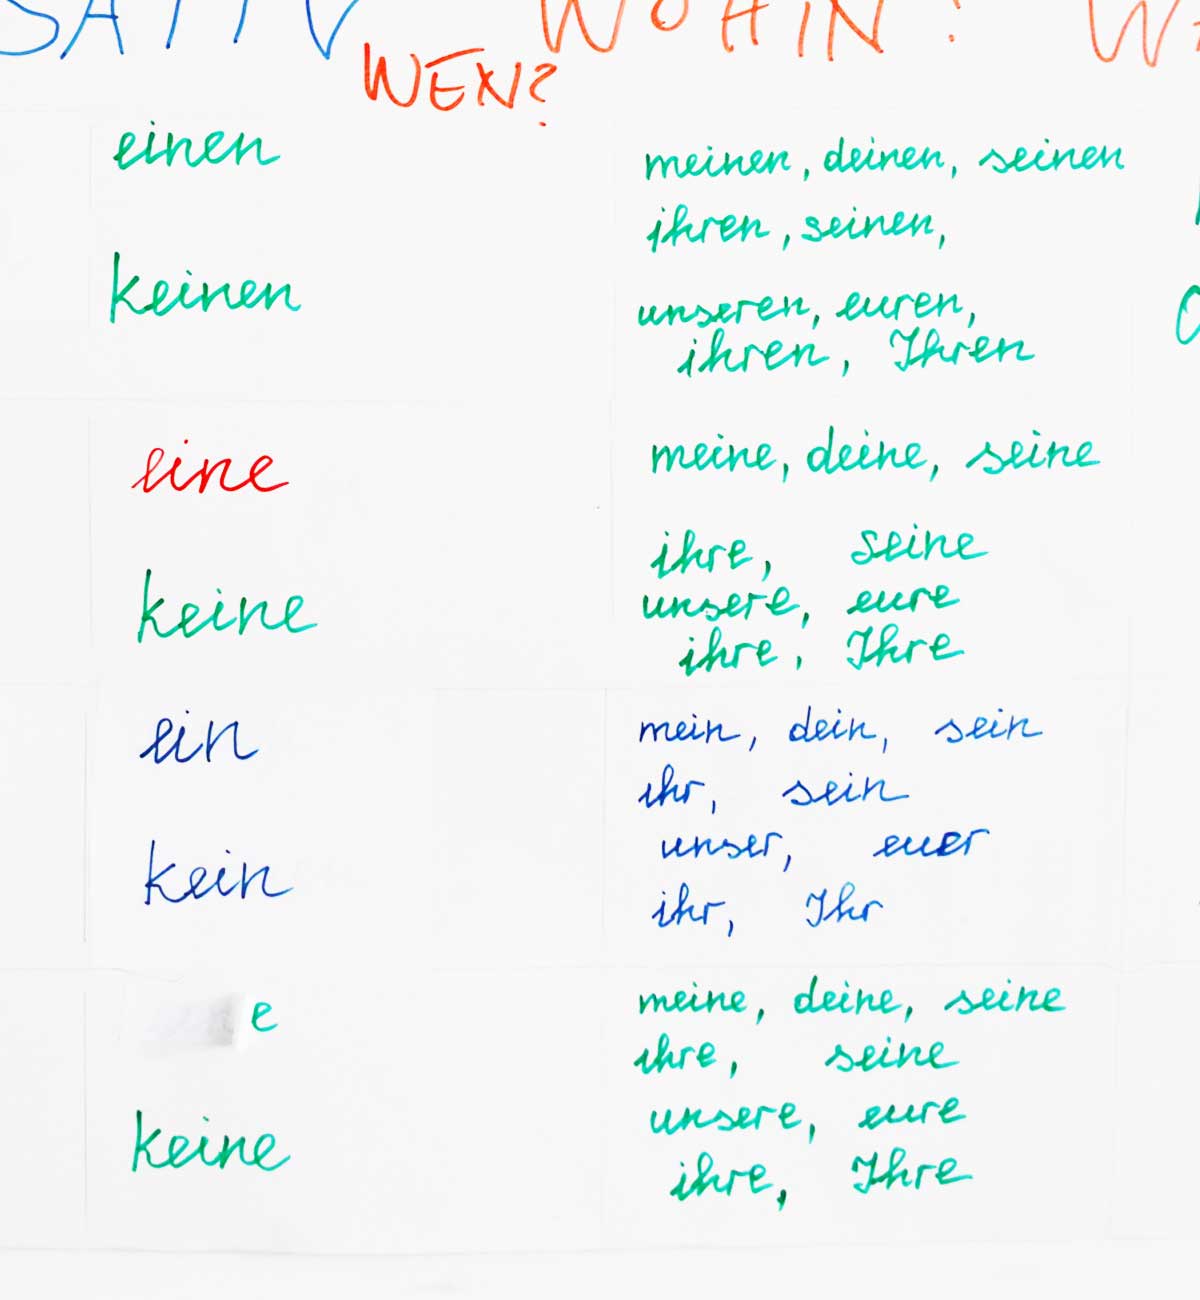 WOHIN?
WEN?
einen
meinen, deinen, seinen
ihren, seinen,
keinen
unseren, euren,
ihren, Ihren
eine
meine, deine, seine
ihre, seine
keine
unsere, eure
ihre, Ihre
ein
mein, dein, sein
ihr, sein
kein
unser, euer
ihr, Ihr
e
meine, deine, seine
ihre, seine
keine
unsere, eure
ihre, Ihre